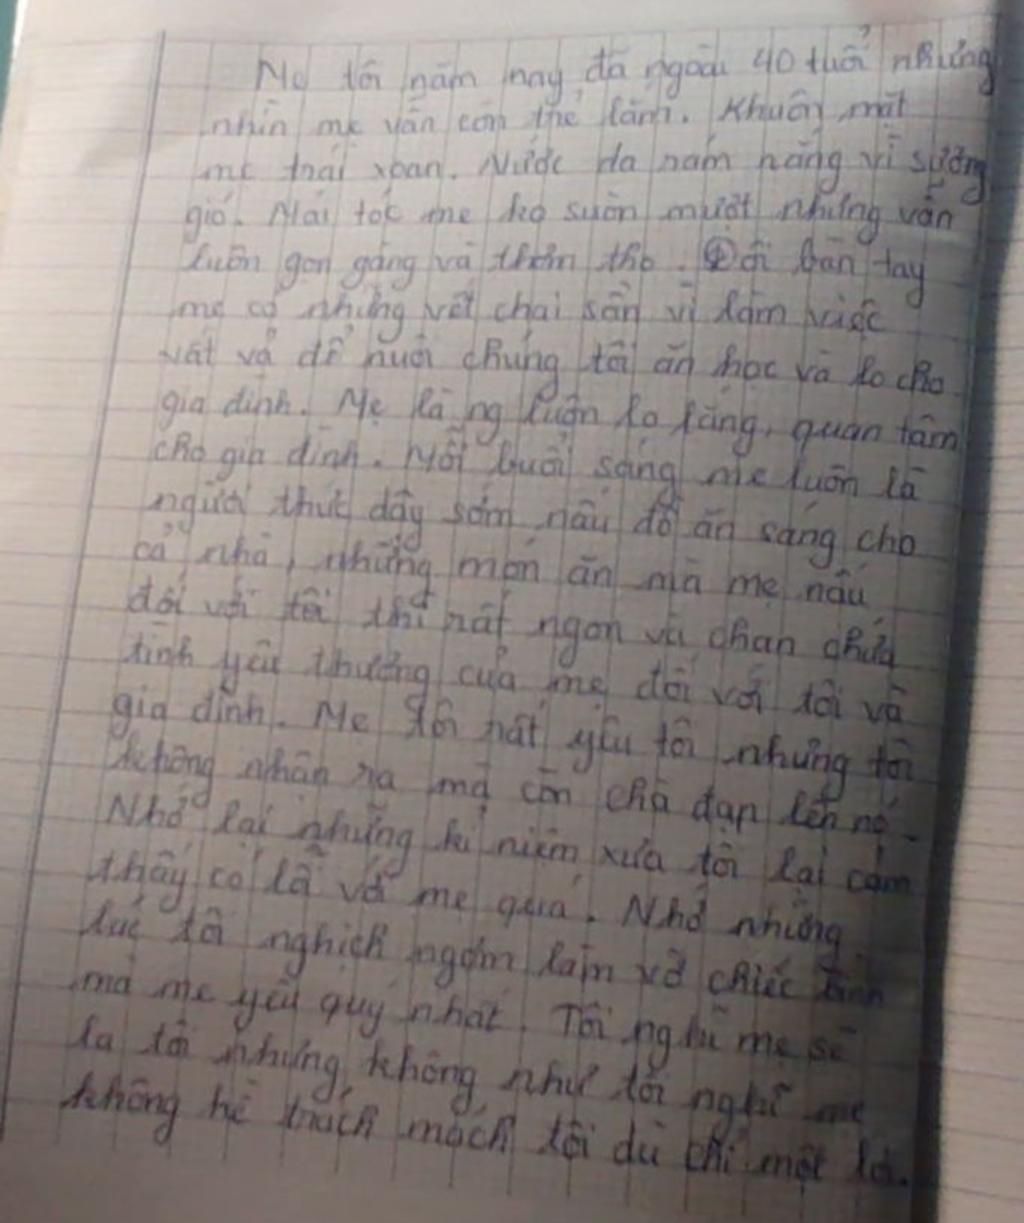 Mẹ tôi năm nay đã ngoài 40 tuổi nhưng
nhìn mẹ vẫn còn trẻ lắm. Khuôn mặt
mẹ trái xoan. Nước da rám nắng vì sương
gió. Mái tóc mẹ ko suôn mượt nhưng vẫn
luôn gọn gàng và thơm tho. Đôi bàn tay
mẹ có những vết chai sần vì làm việc
vất vả để nuôi chúng tôi ăn học và lo cho
gia đình. Mẹ là ng luôn lo lắng, quan tâm
cho gia đình. Mỗi buổi sáng mẹ luôn là
người thức dậy sớm nấu đồ ăn sáng cho
cả nhà, những món ăn mà mẹ nấu
đối với tôi thì rất ngon và chan chứa
tình yêu thương của mẹ đối với tôi và
gia đình. Mẹ tôi rất yêu tôi nhưng tôi
không nhận ra mà còn chà đạp lên nó.
Nhớ lại những kỉ niệm xưa tôi lại cảm
thấy có lỗi với mẹ quá. Nhớ những
lúc tôi nghịch ngợm làm vỡ chiếc bình
mà mẹ yêu quý nhất. Tôi nghĩ mẹ sẽ
la tôi nhưng không như tôi nghĩ mẹ
không hề trách mắch tôi dù chỉ một lời.